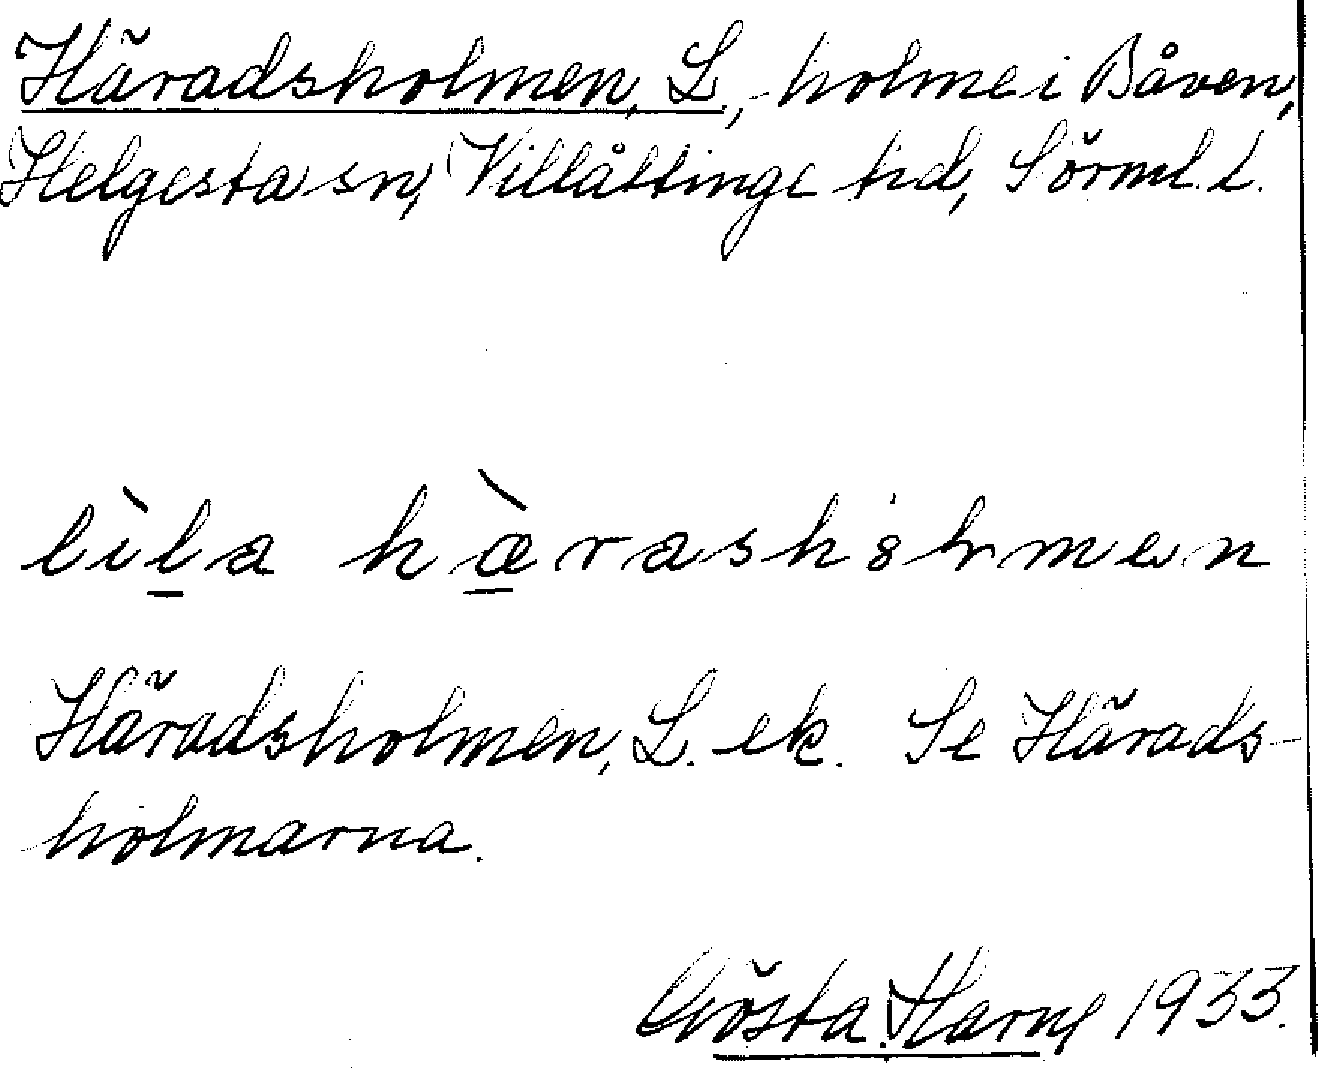 Häradsholmen, L., holme i Båven,
Helgesta sn, Villåttinge hd, Sörml. l.
lìla hæ̀rashólmen
Häradsholmen, L. ek. Se Härads-
holmarna.
Gösta Harng 1933.